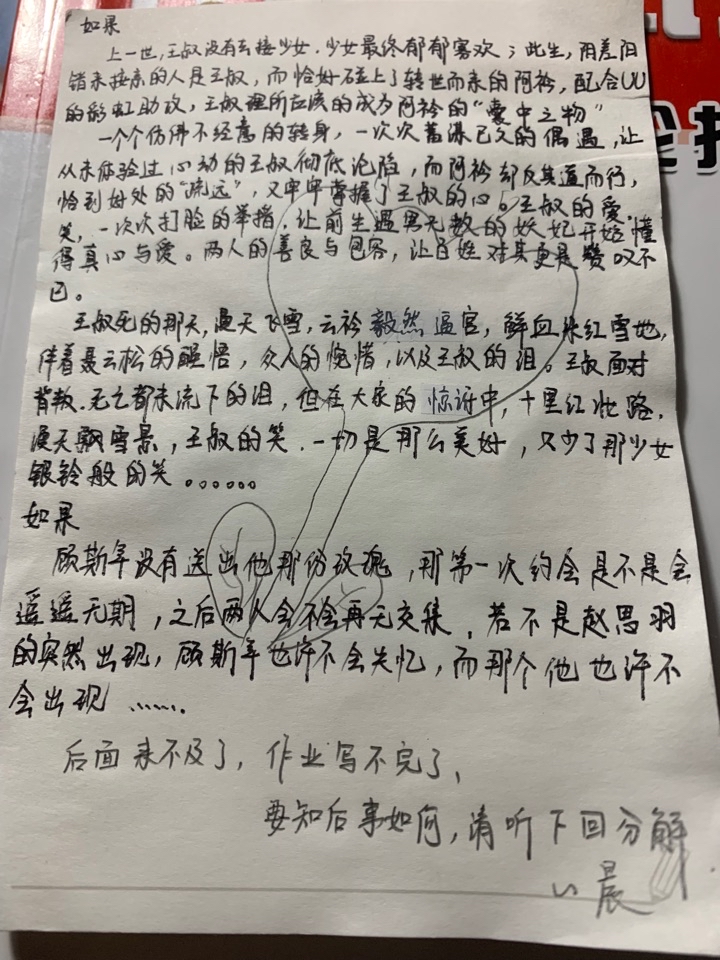 如果
上一世,王叔没有去接少女.少女最终郁郁寡欢;此生,阴差阳
错来接亲的人是王叔,而恰好碰上了转世而来的阿衿,配合UU
的彩虹助攻,王叔理所应该的成为阿衿的“囊中之物”
一个个仿佛不经意的转身,一次次蓄谋已久的偶遇,让
从未体验过心动的王叔彻底沦陷,而阿衿却反其道而行,
恰到好处的“疏远”,又牢牢掌握了王叔的心。王叔的爱.
笑,一次次打脸的举措,让前生遇害无数的妖妃开始懂
得真心与爱。两人的善良与包容,让百姓对其更是赞叹不
已。
王叔死的那天,漫天飞雪,云衿毅然逼宫,鲜血染红雪地,
伴着聂云松的醒悟,众人的惋惜,以及王叔的泪。王叔面对
背叛.死亡都未流下的泪,但在大家的惊讶中,十里红妆路,
漫天飘雪景,王叔的笑.一切是那么美好,只少了那少女
银铃般的笑。。。。。。
如果
顾斯年没有送出他那份玫瑰,那第一次约会是不是会
遥遥无期,之后两人会不会再无交集.若不是赵思羽
的突然出现,顾斯年也许不会失忆,而那个他也许不
会出现......
后面来不及了,作业写不完了,
要知后事如何,请听下回分解
晨